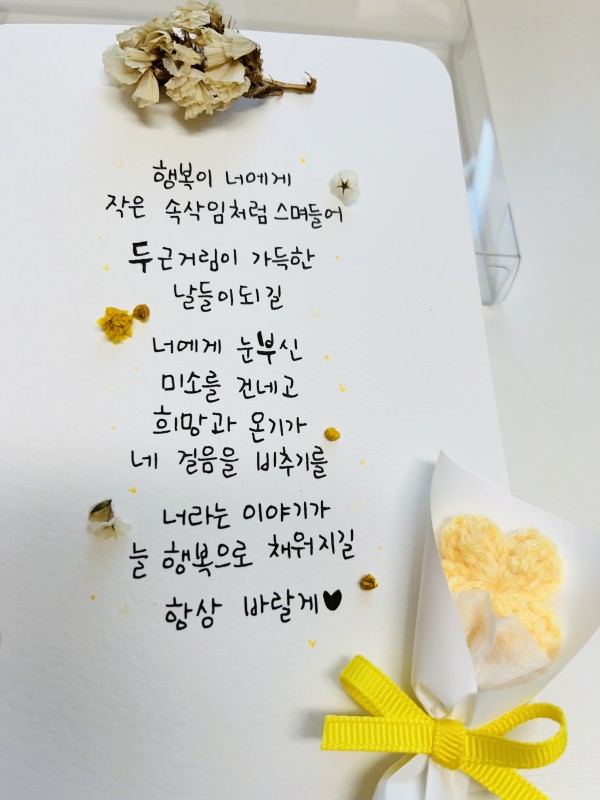 행복이 너에게
작은 속삭임처럼 스며들어
두근거림이 가득한
날들이되길
너에게 눈부신
미소를 건네고
희망과 온기가
네 걸음을 비추기를
너라는 이야기가
늘 행복으로 채워지길
항상 바랄게♥